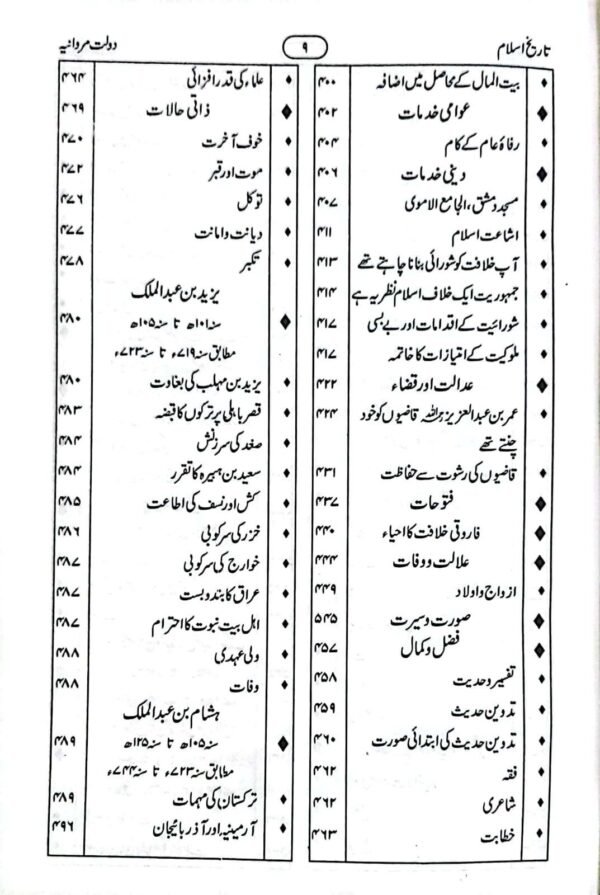 تاریخ اسلام ۹ دولت مروانیہ
♦ بیت المال کے محاصل میں اضافہ ۴۰۰
◆ عوامی خدمات ۴۰۲
♦ رفاہ عام کے کام ۴۰۴
◆ دینی خدمات ۴۰۶
♦ مسجد دمشق، الجامع الاموی ۴۰۷
♦ اشاعت اسلام ۴۱۱
♦ آپ خلافت کو شورائی بنانا چاہتے تھے ۴۱۳
♦ جمہوریت ایک خلاف اسلام نظریہ ہے ۴۱۴
♦ شورائیت کے اقدامات اور بے بسی ۴۱۷
♦ ملوکیت کے امتیازات کا خاتمہ ۴۱۷
◆ عدالت اور قضاء ۴۲۲
♦ عمر بن عبدالعزیز رحمہ اللہ قاضیوں کو خود ۴۲۴
چنتے تھے
♦ قاضیوں کی رشوت سے حفاظت ۴۳۱
◆ فتوحات ۴۳۷
◆ فاروقی خلافت کا احیاء ۴۴۰
◆ علالت و وفات ۴۴۴
♦ ازواج و اولاد ۴۴۹
◆ صورت و سیرت ۵۴۵
◆ فضل و کمال ۴۵۷
♦ تفسیر و حدیث ۴۵۸
♦ تدوین حدیث ۴۵۹
♦ تدوین حدیث کی ابتدائی صورت ۴۶۰
♦ فقہ ۴۶۲
♦ شاعری ۴۶۲
♦ خطابت ۴۶۳
♦ علماء کی قدر افزائی ۴۶۴
◆ ذاتی حالات ۴۶۹
♦ خوف آخرت ۴۷۰
♦ موت اور قبر ۴۷۲
♦ توکل ۴۷۶
♦ دیانت و امانت ۴۷۷
♦ تکبر ۴۷۸
یزید بن عبدالملک
◆ سنہ ۱۰۱ھ تا سنہ ۱۰۵ھ ۴۸۰
مطابق سنہ ۷۱۹ء تا سنہ ۷۲۳ء
♦ یزید بن مہلب کی بغاوت ۴۸۰
♦ قصر باہلی پر ترکوں کا قبضہ ۴۸۳
♦ صغد کی سرزنش ۴۸۴
♦ سعید بن ہبیرہ کا تقرر ۴۸۴
♦ کش اور نسف کی اطاعت ۴۸۵
♦ خزر کی سرکوبی ۴۸۶
♦ خوارج کی سرکوبی ۴۸۷
♦ عراق کا بندوبست ۴۸۷
♦ اہل بیت نبوت کا احترام ۴۸۷
♦ ولی عہدی ۴۸۸
♦ وفات ۴۸۸
ہشام بن عبدالملک
◆ سنہ ۱۰۵ھ تا سنہ ۱۲۵ھ ۴۸۹
مطابق سنہ ۷۲۳ء تا سنہ ۷۴۴ء
♦ ترکستان کی مہمات ۴۸۹
♦ آرمینیہ اور آذر بائیجان ۴۹۶